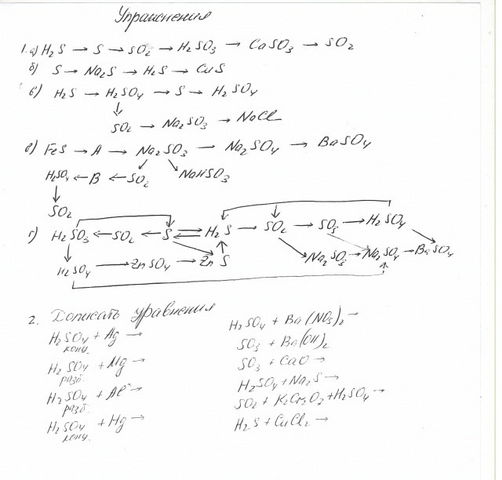 Упражнения
1. а) H₂S → S → SO₂ → H₂SO₃ → CaSO₃ → SO₂
б) S → Na₂S → H₂S → CuS
в) H₂S → H₂SO₄ → S → H₂SO₄
↓
SO₂ → Na₂SO₃ → NaCl
е) FeS → A → Na₂SO₃ → Na₂SO₄ → BaSO₄
H₂SO₄ ← B ← SO₂ NaHSO₃
↓
SO₂
г) H₂SO₃ ← SO₂ ← S ⇄ H₂S → SO₂ → SO₃ → H₂SO₄
H₂SO₄ → ZnSO₄ → ZnS Na₂SO₃ → Na₂SO₄ → BaSO₄
2. Дописать уравнения
H₂SO₄ + Ag →
конц.
H₂SO₄ + Mg →
разб.
H₂SO₄ + Al →
разб.
H₂SO₄ + Hg →
конц.
H₂SO₄ + Ba(NO₃)₂ →
SO₃ + Ba(OH)₂
SO₃ + CaO →
H₂SO₄ + Na₂S →
SO₂ + K₂Cr₂O₇ + H₂SO₄ →
H₂S + CuCl₂ →